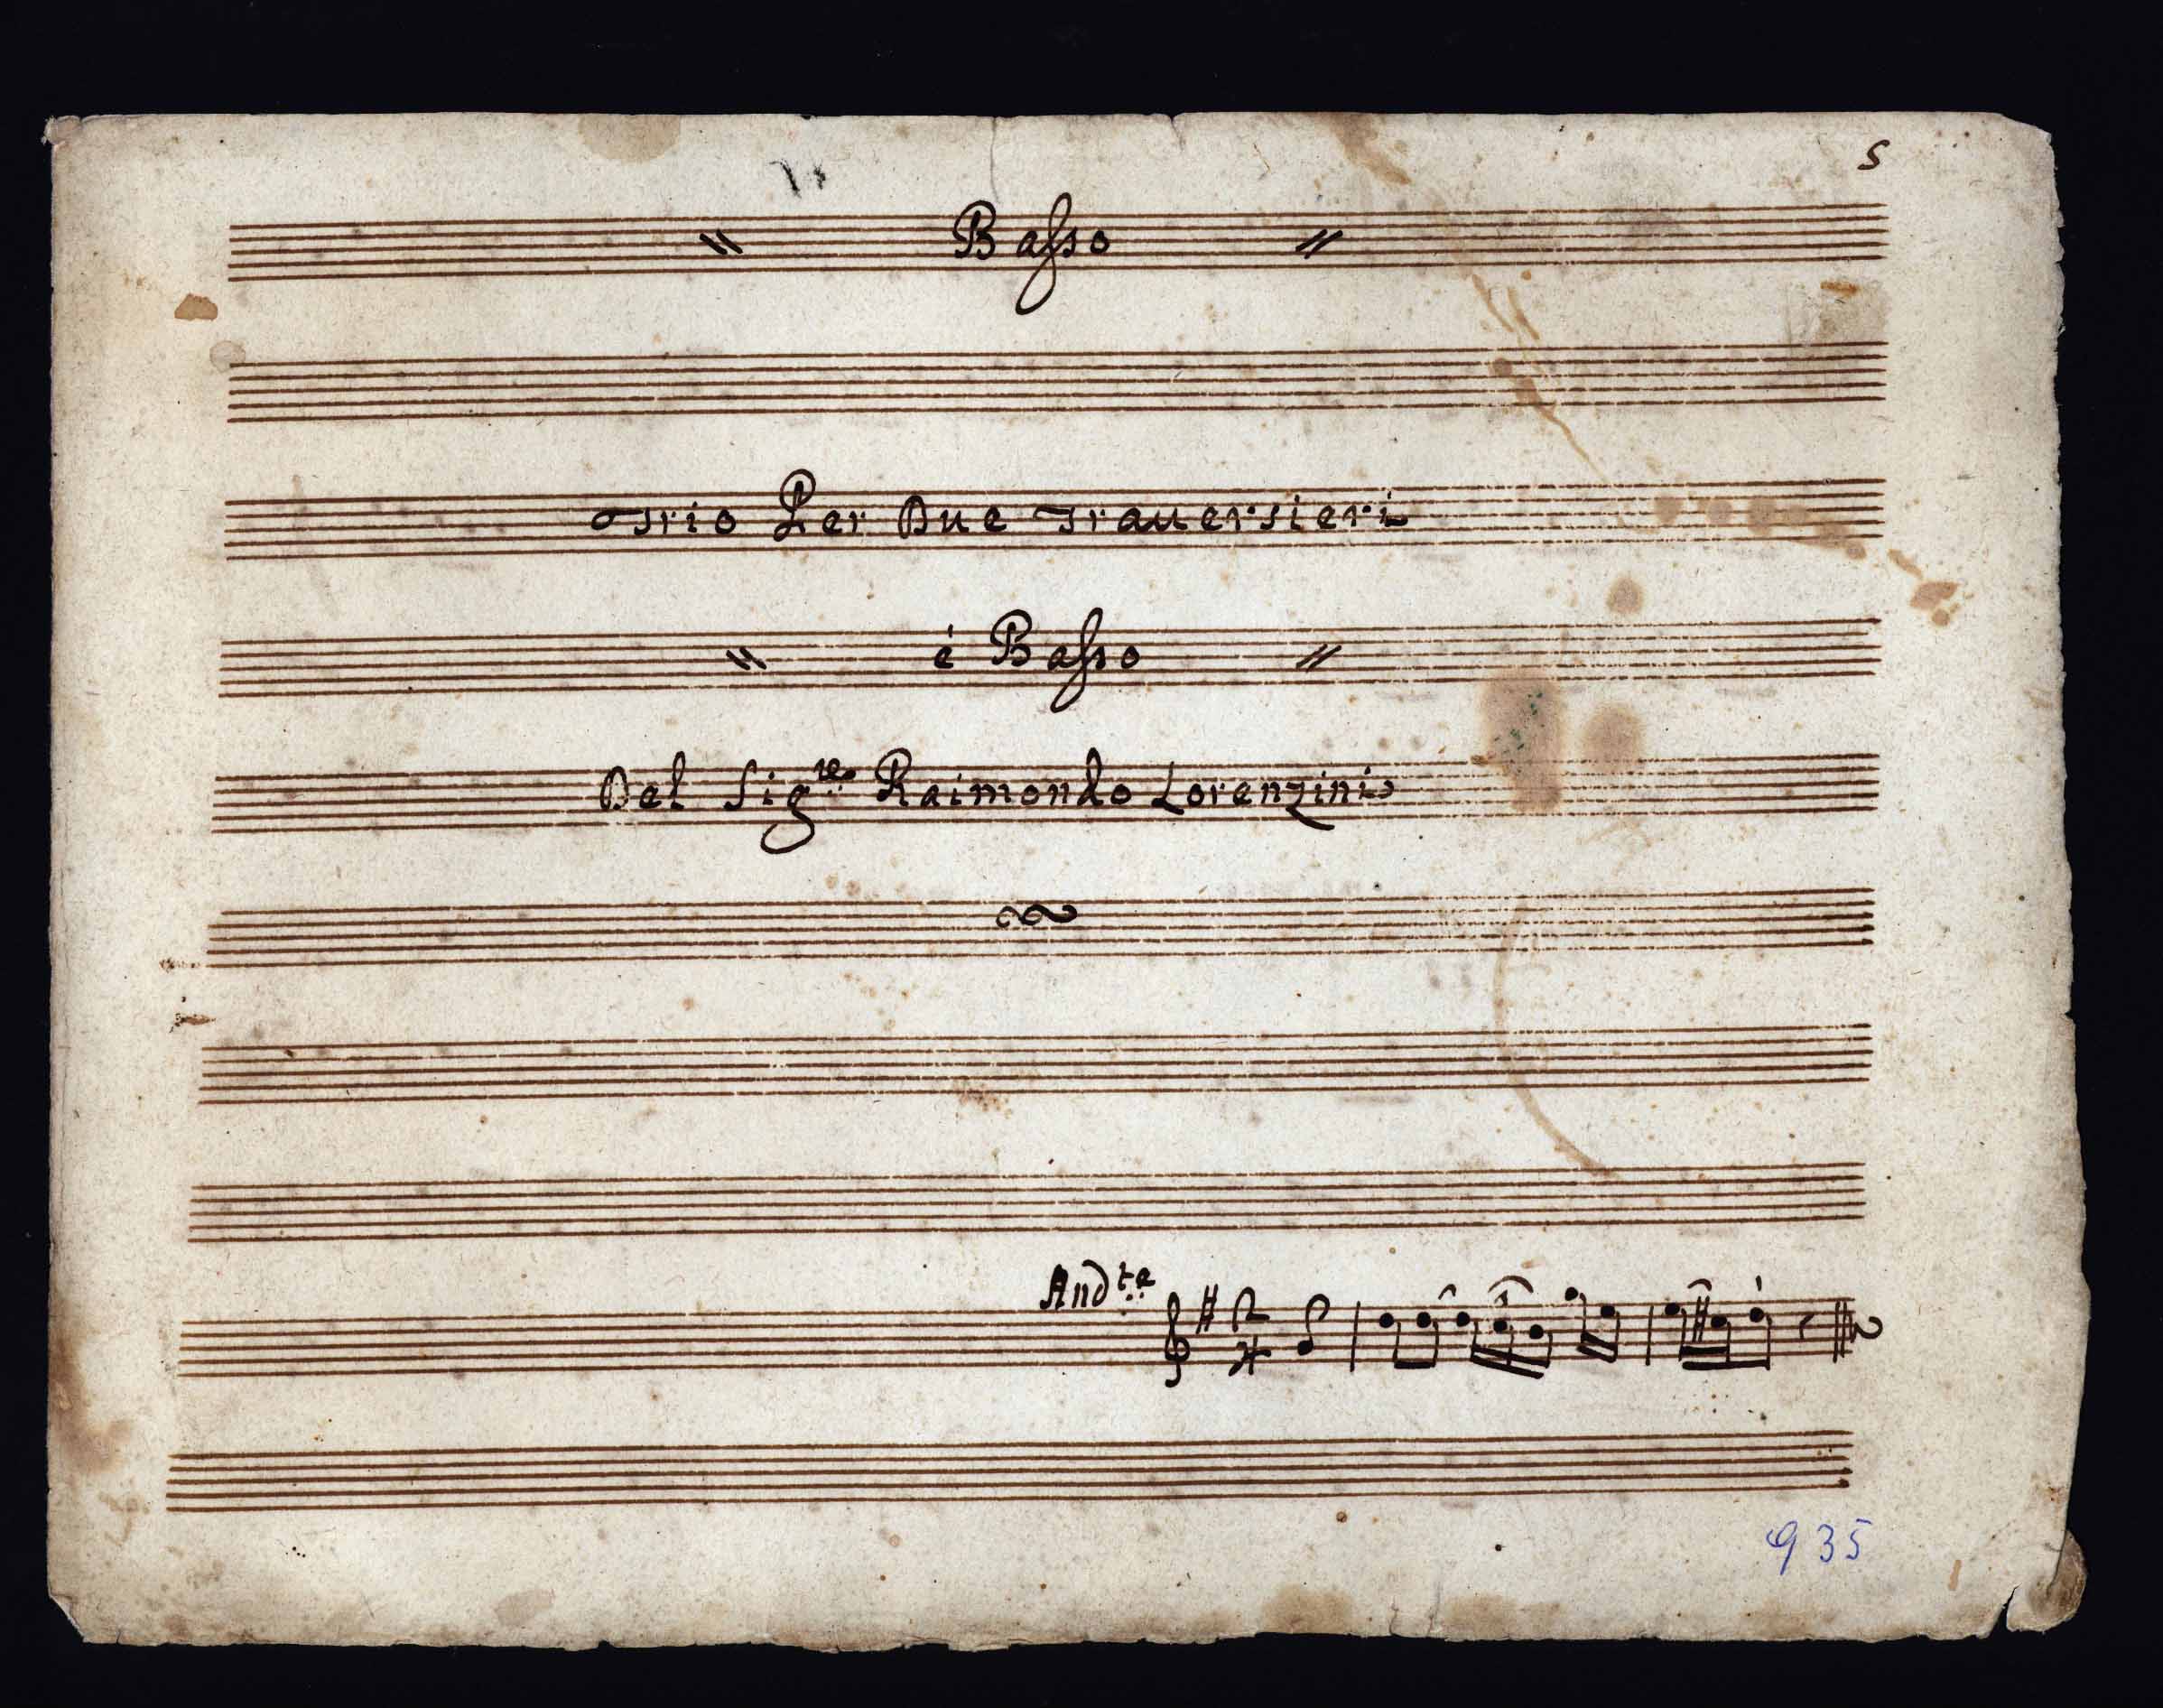 5
Basso
Trio Per Due Trauersieri
é Basso
Del Sig.re Raimondo Lorenzini
And.te
2
4
935